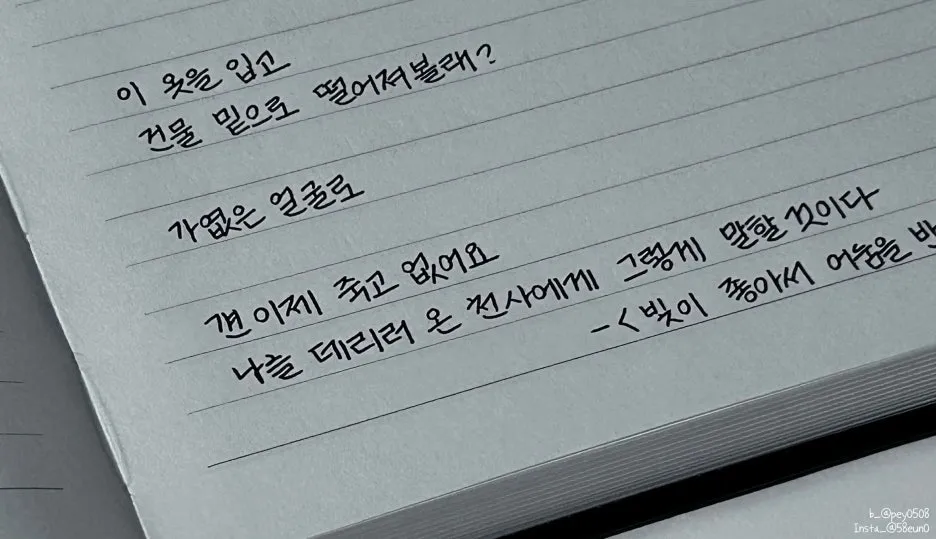 이 옷을 입고
건물 밑으로 떨어져볼래?
가엾은 얼굴로
걘 이제 죽고 없어요
나를 데리러 온 천사에게 그렇게 말할 것이다
-<빛이 좋아서 어둠을 반
b_@pey0508
Insta_@58eun0